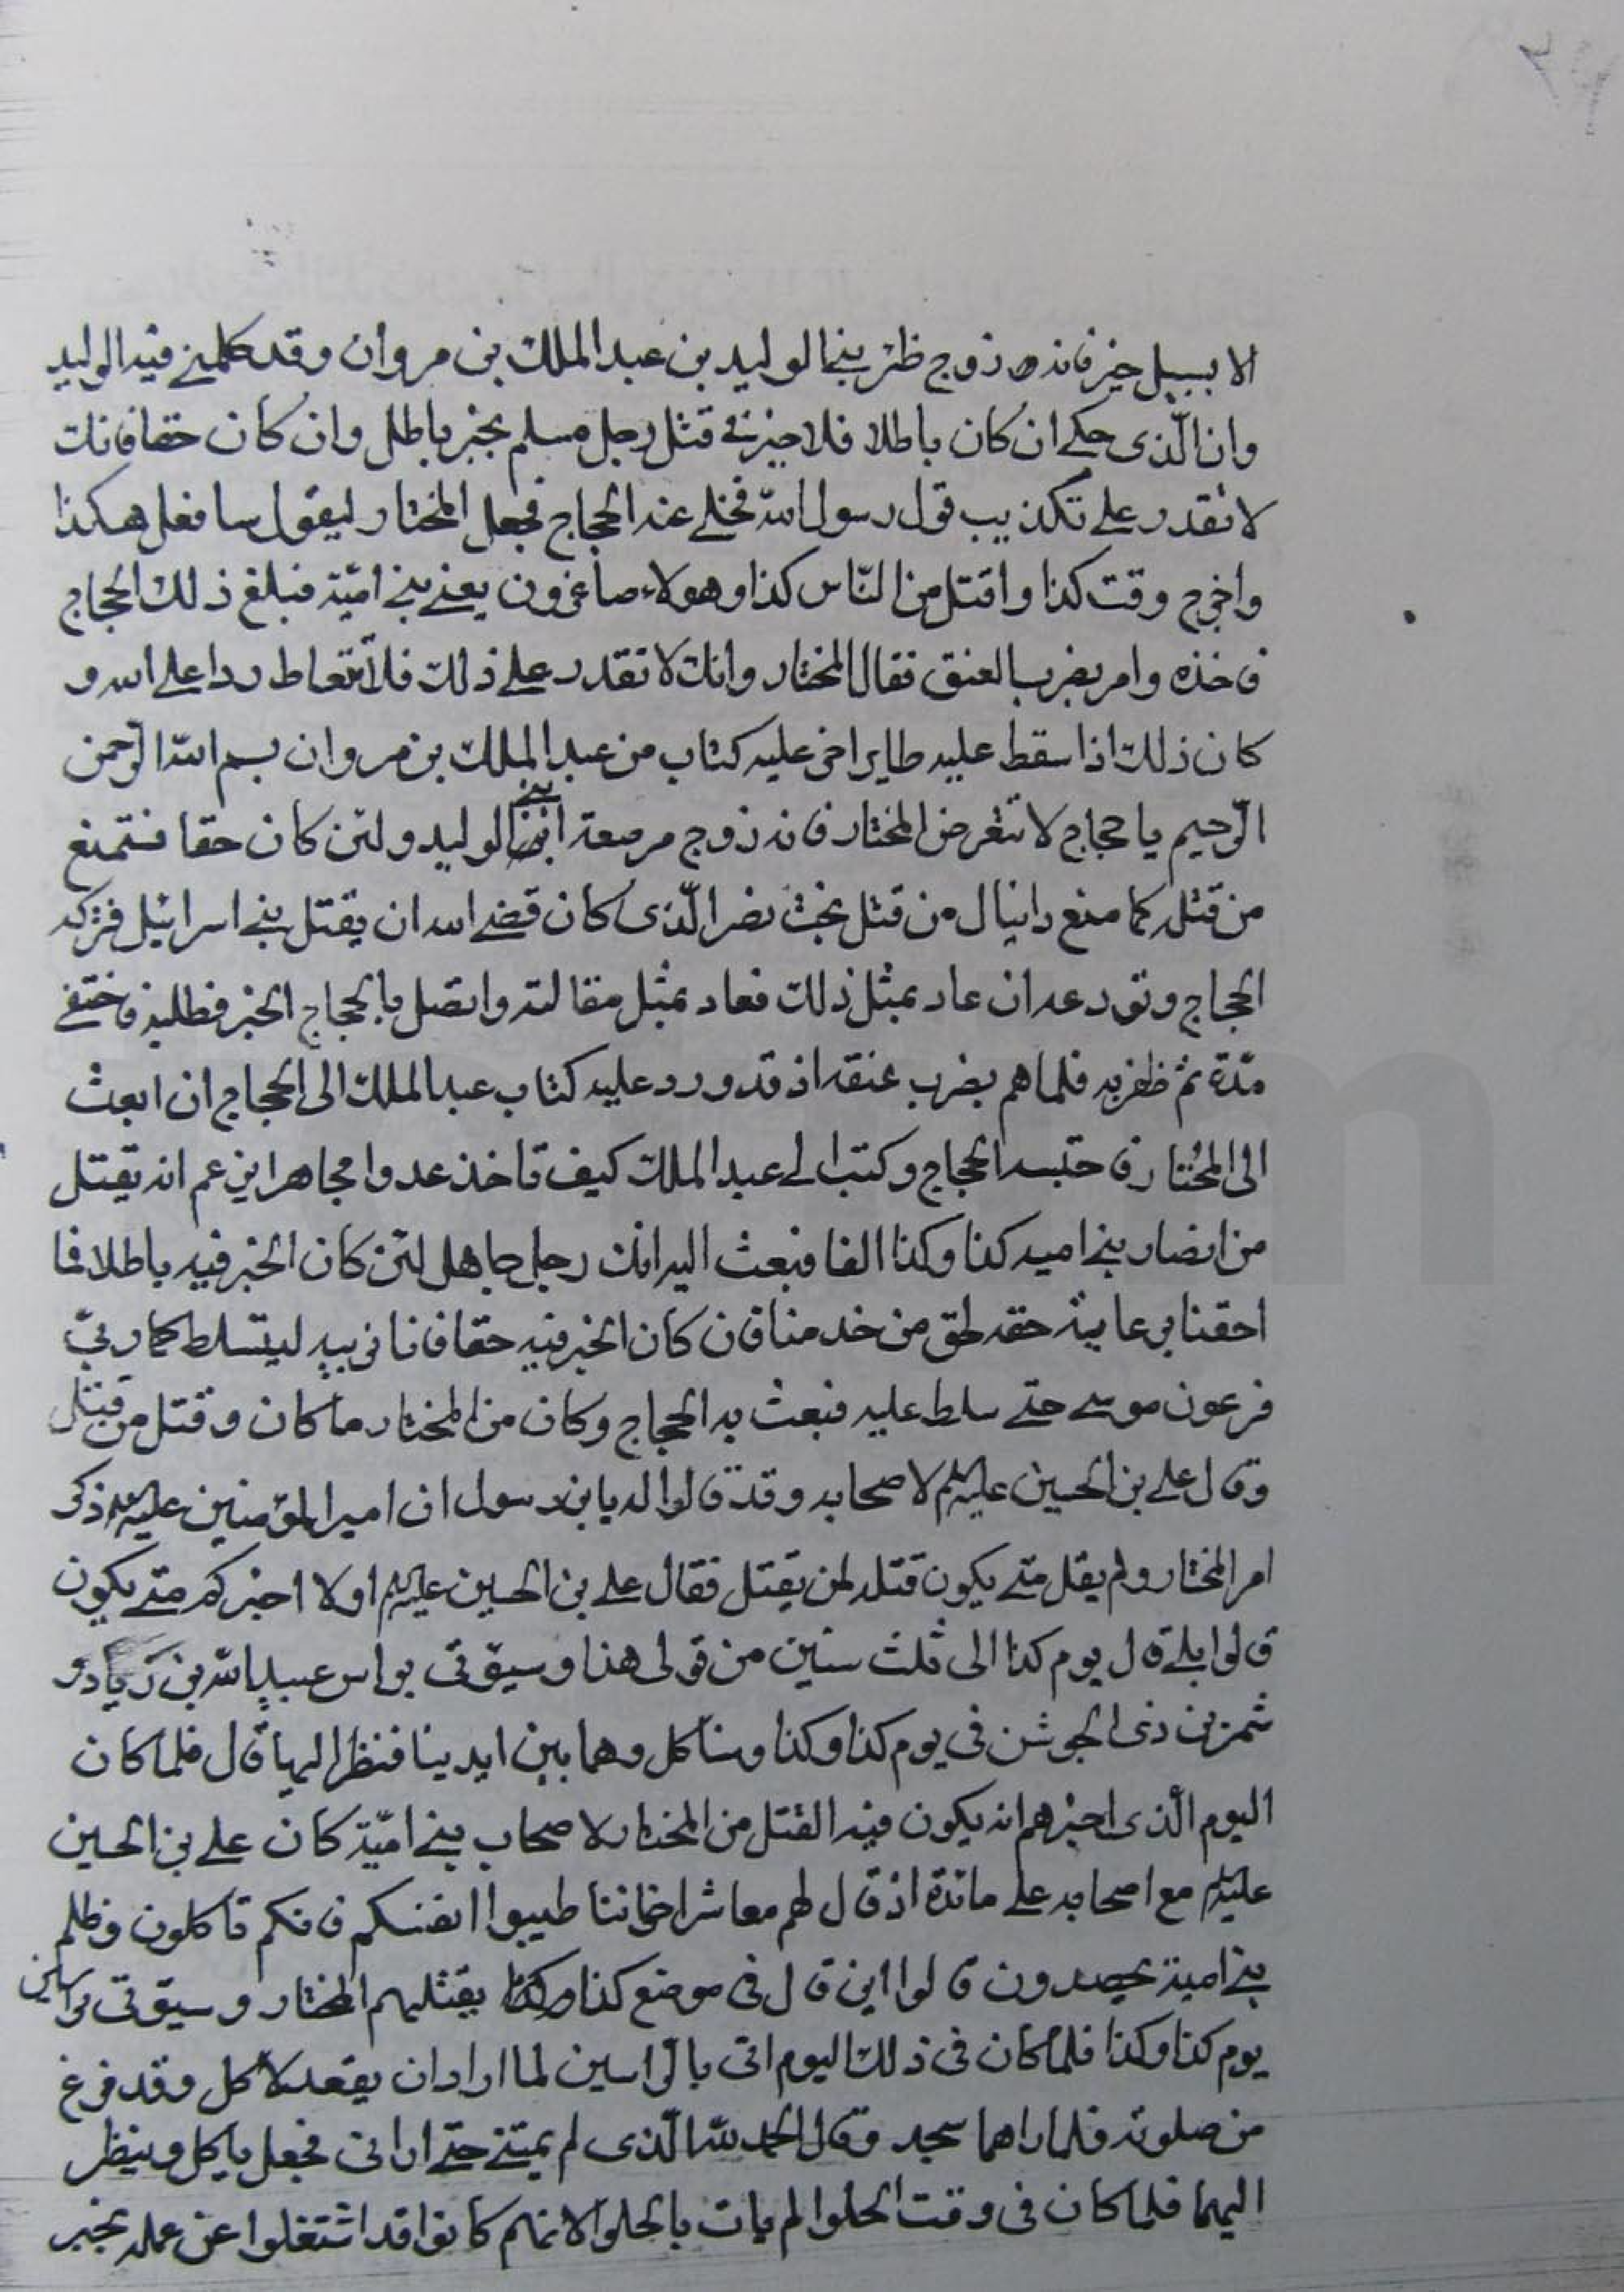 الا بسبيل خير فانه زوج ظئر بنى الوليد بن عبد الملك بن مروان وقد كلمنى فيه الوليد
وان الّذى حكى ان كان باطلا فلا خير فى قتل رجل مسلم بخبر باطل وان كان حقا فانك
لا تقدر على تكذيب قول رسول اللّه فخلى عنه الحجاج فجعل المختار ليقول سافعل هكذا
واخرج وقت كذا واقتل من النّاس كذا وهولاء صاغرون يعنى بنى اميّة فبلغ ذلك الحجاج
فاخذه وامر بضرب العنق فقال المختار وانك لا تقدر على ذلك فلا تتعاط ردا على الله و
كان ذلك اذا سقط عليه طاير اخر عليه كتاب من عبد الملك بن مروان بسم اللّه الرّحمن
الرّحيم يا حجاج لا تتعرض المختار فانه زوج مرضعة ابنى الوليد ولئن كان حقا فتمنع
من قتله كما منع دانيال من قتل بخت نصر الّذى كان قضى الله ان يقتل بنى اسرائيل فتركه
الحجاج وتودعه ان عاد بمثل ذلك فعاد بمثل مقالته واتصل بالحجاج الخبر فطلبه فاختفى
مدّة ثم ظفر به فلما هم بضرب عنقه اذ قد ورد عليه كتاب عبد الملك الى الحجاج ان ابعث
الى المختار فاحتبسه الحجاج وكتب الى عبد الملك كيف تاخذ عدوا مجاهرا يزعم انه يقتل
من انصار بنى اميه كذا وكذا الفا فبعث اليه انك رجل جاهل لئن كان الخبر فيه باطلا فما
احقنا برعاية حقه لحق من خدمنا فان كان الخبر فيه حقا فانا نربيه ليتسلط كما ربىّ
فرعون موسى حتى سلط عليه فبعث به الحجاج وكان من المختار ما كان وقتل من قتل
وقال على بن الحسين عليه السلم لاصحابه وقد قالوا له يا بن رسول ان امير المؤمنين عليه السلم ذكر
امر المختار ولم يقل متى يكون قتله لمن يقتل فقال على بن الحسين عليه السلم اولا اخبركم متى يكون
قالوا بلى قال يوم كذا الى ثلث سنين من قولى هذا وسيؤتى براس عبيد اللّه بن زياد و
شمر بن ذى الجوشن فى يوم كذا وكذا وسناكل وهما بين ايدينا فنظر اليها قال فلما كان
اليوم الّذى اخبرهم انه يكون فيه القتل من المختار لاصحاب بنى اميّة كان على بن الحسين
عليه السلم مع اصحابه على مائدة اذ قال لهم معاشر اخواننا طيبوا انفسكم فانكم تاكلون وظلم
بنى امية يحصدون قالوا اين قال فى موضع كذا وكذا يقتلهم المختار وسيؤتى براسين
يوم كذا وكذا فلما كان فى ذلك اليوم اتى بالرّاسين لما اراد ان يقعد لاكل وقد فرغ
من صلوته فلما راهما سجد وقال الحمد للّه الّذى لم يمتنى حتى ارانى فجعل ياكل وينظر
اليهما فلما كان فى وقت الحلوا لم يات بالحلوا لانهم كانوا قد اشتغلوا عن عمله بخبر